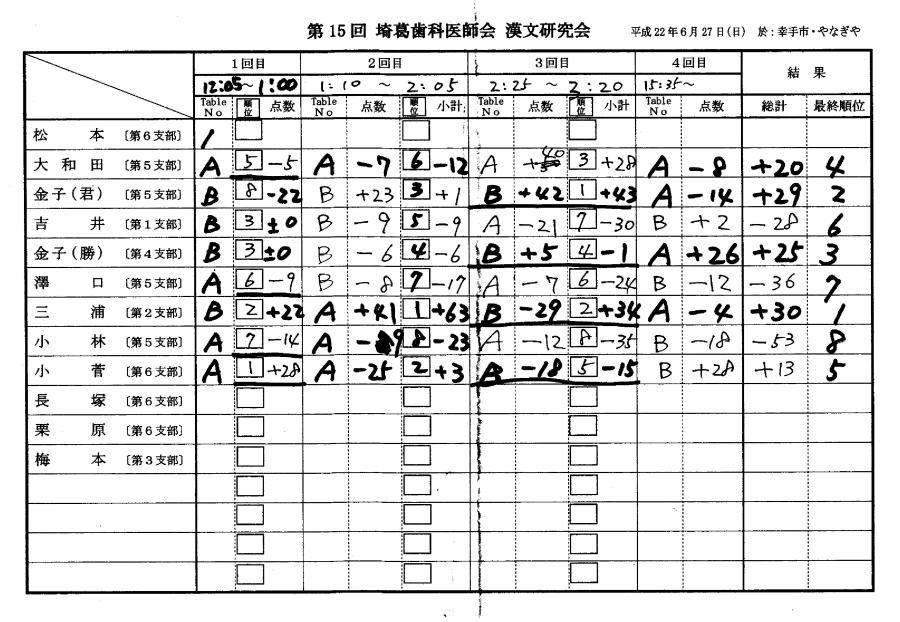 第15回 埼葛歯科医師会 漢文研究会 平成22年6月27日(日) 於:幸手市・やなぎや
1回目 2回目 3回目 4回目 結果
12:05〜1:00 1:10 〜 2:05 2:25 〜 2:20 15:35〜
Table No 順位 点数 Table No 点数 順位 小計 Table No 点数 順位 小計 Table No 点数 総計 最終順位
松本 〔第6支部〕 /
大和田 〔第5支部〕 A 5 -5 A -7 6 -12 A +40 3 +28 A -8 +20 4
金子(君) 〔第5支部〕 B 8 -22 B +23 3 +1 B +42 1 +43 A -14 +29 2
吉井 〔第1支部〕 B 3 ±0 B -9 5 -9 A -21 7 -30 B +2 -28 6
金子(勝) 〔第4支部〕 B 3 ±0 B -6 4 -6 B +5 4 -1 A +26 +25 3
澤口 〔第5支部〕 A 6 -9 B -8 7 -17 A -7 6 -24 B -12 -36 7
三浦 〔第2支部〕 B 2 +22 A +41 1 +63 B -29 2 +34 A -4 +30 1
小林 〔第5支部〕 A 7 -14 A -9 8 -23 A -12 8 -35 B -18 -53 8
小菅 〔第6支部〕 A 1 +28 A -25 2 +3 B -18 5 -15 B +28 +13 5
長塚 〔第6支部〕
栗原 〔第6支部〕
梅本 〔第3支部〕